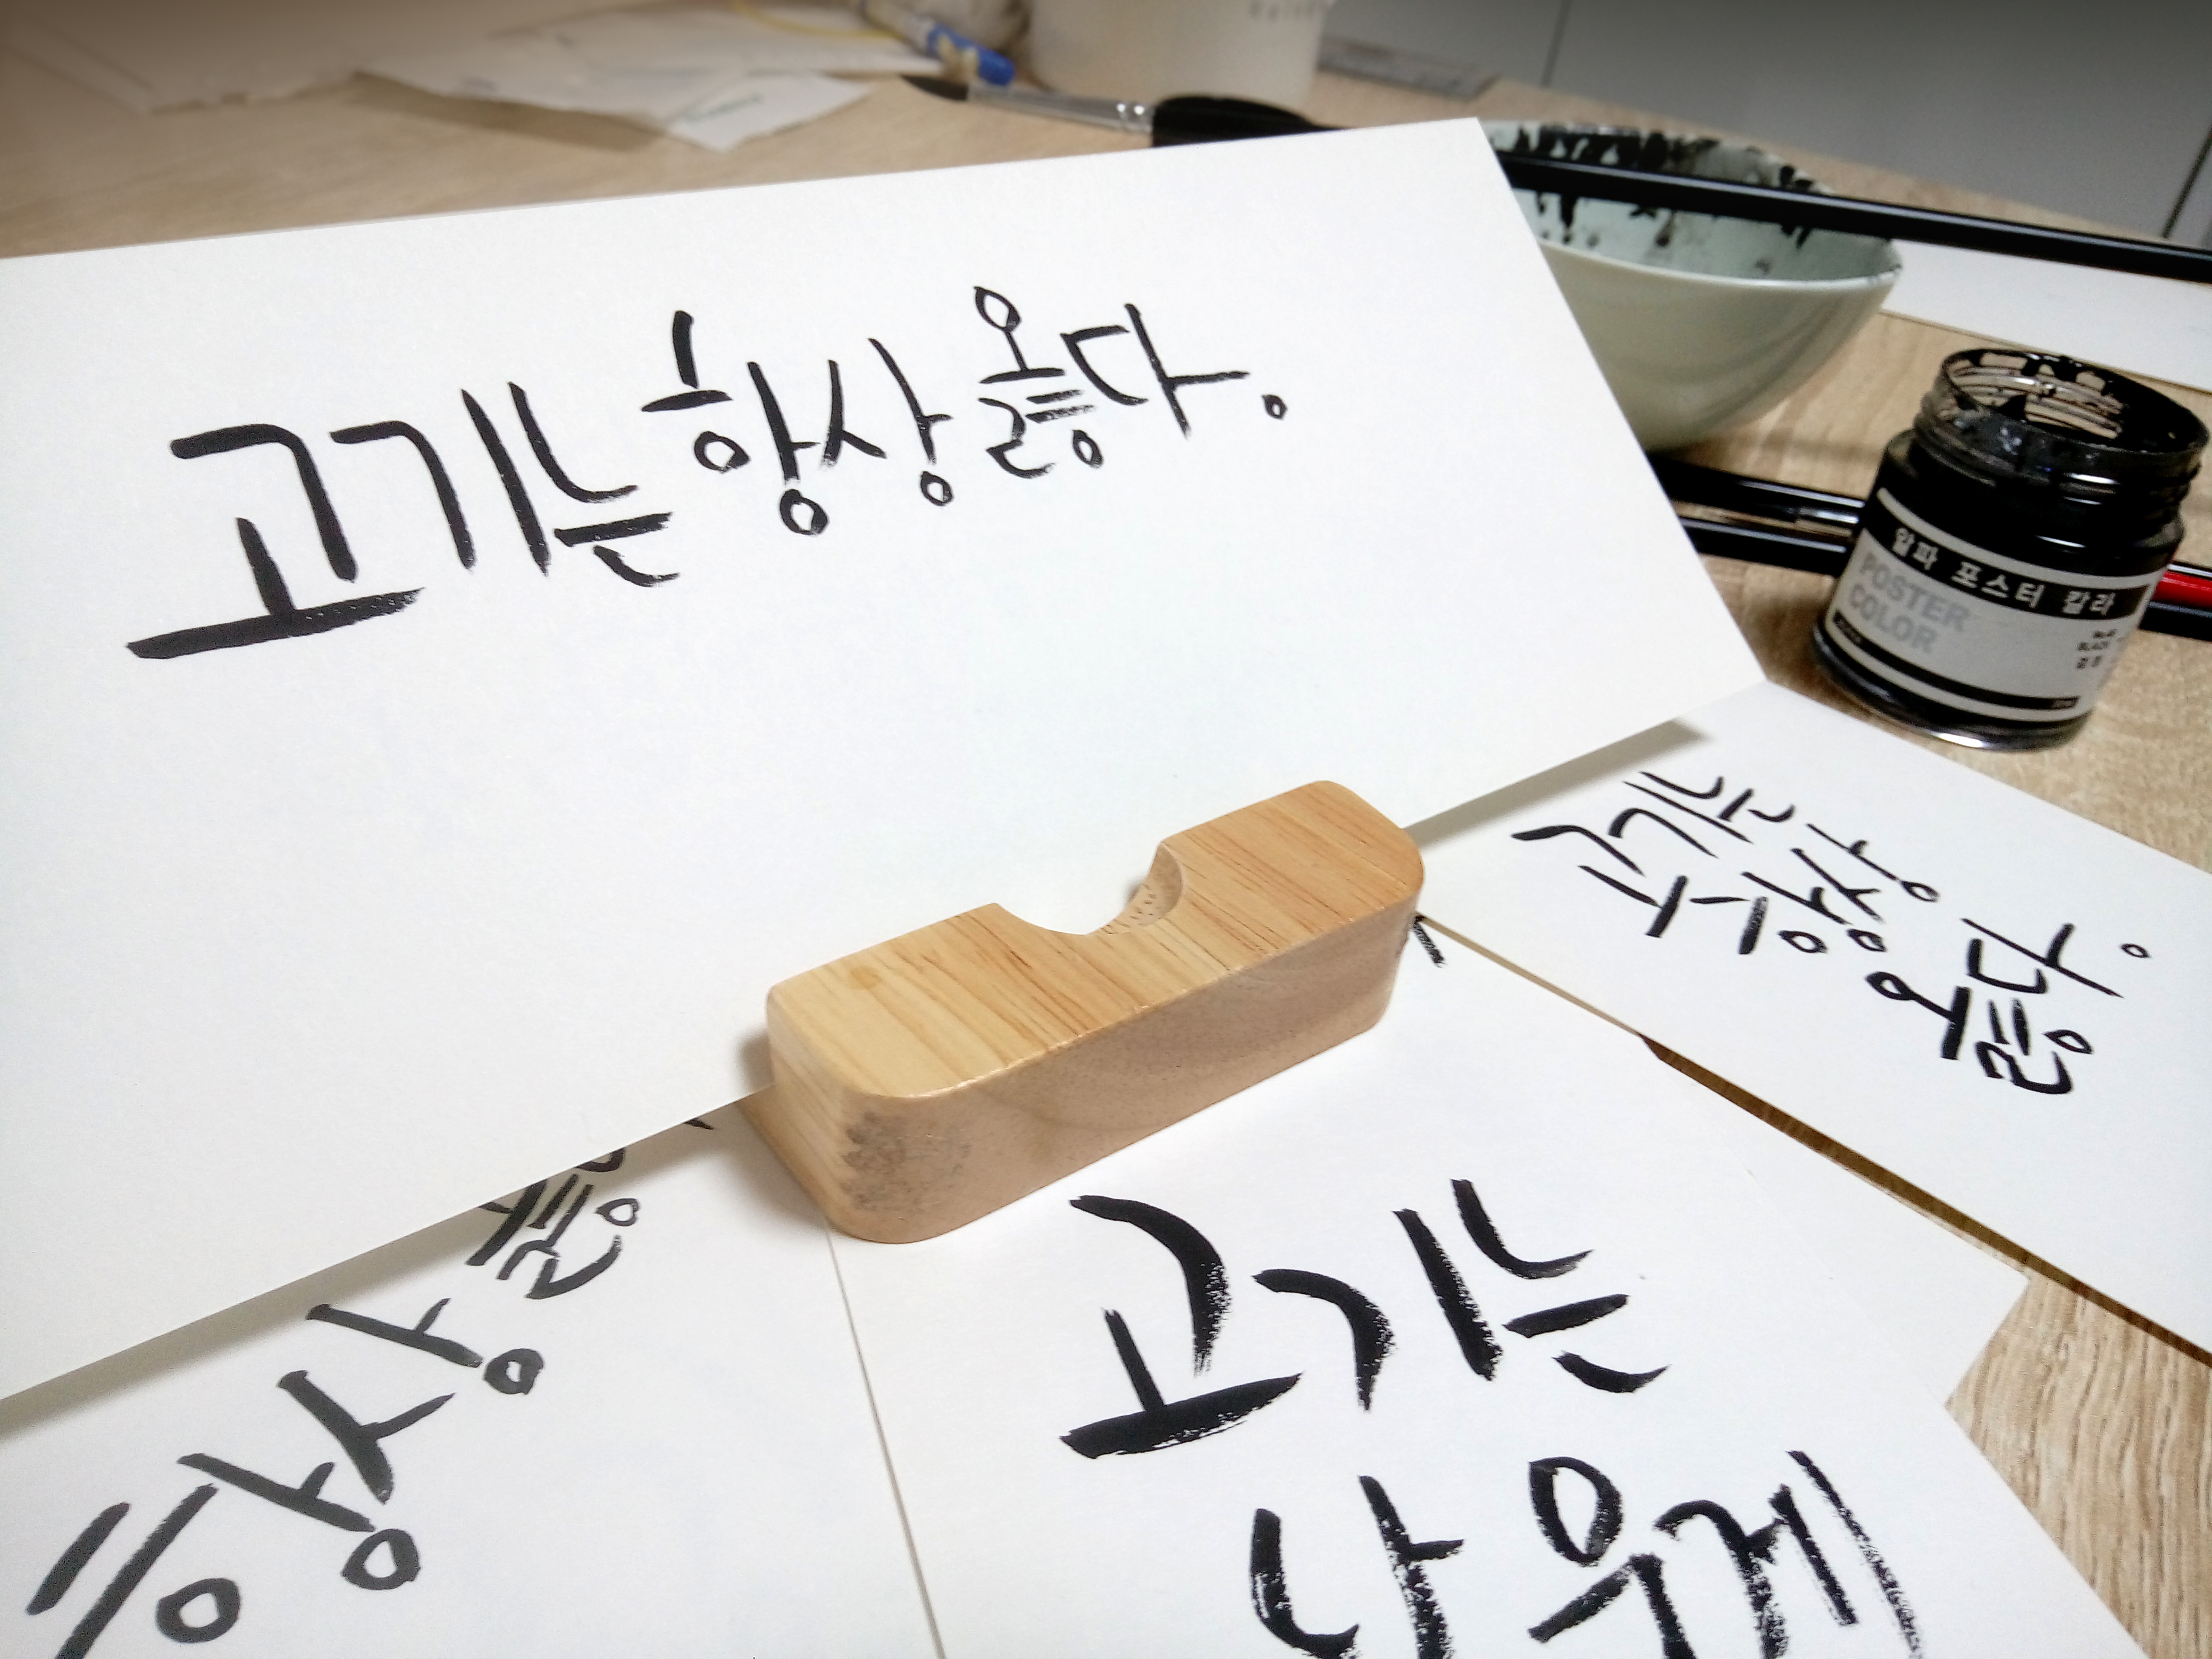 고기는 항상 옳다.
알파 포스터 칼라
POSTER
COLOR
BLACK
검정
고기는
항상
옳다.
항상
옳
고기는